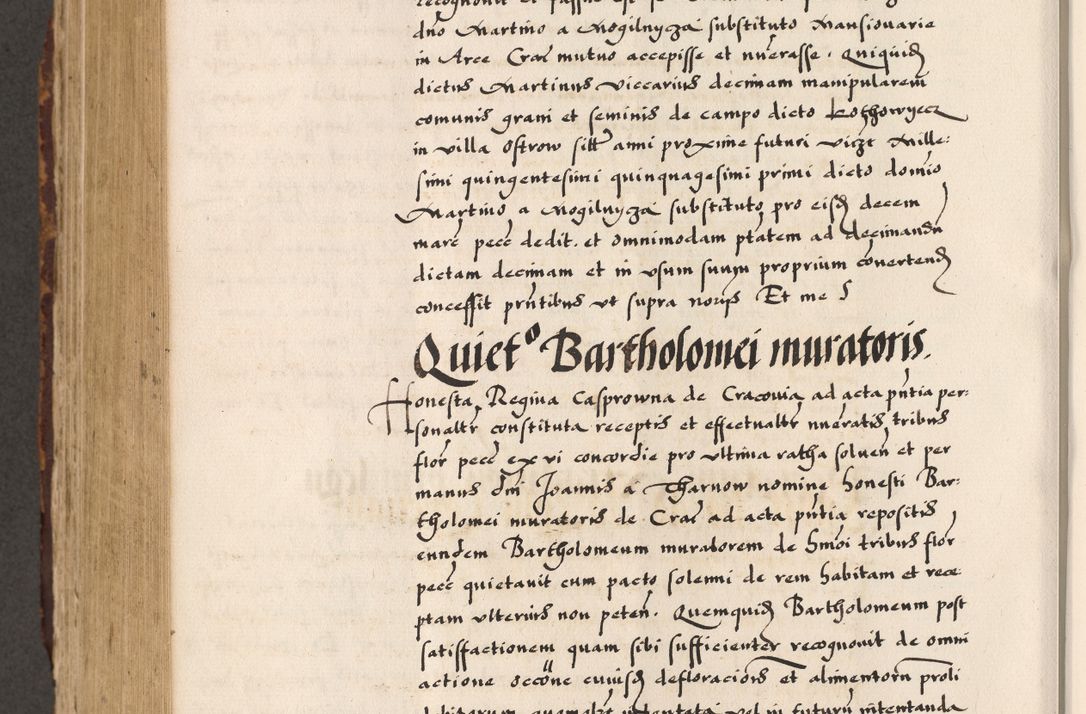 recognovit et fassus est se
dno Martino a Mogilnycza substituto Mansionarie
in Arce Crac mutuo accepisse et nuerasse. Quiquid
dictus Martinus viccarius decimam manipularem
comunis grani et seminis de campo dicto
in villa Ostrow sitt anni proxime futuri vizt Mille:
simi quingentesimi quinquagesimi primi dicto domio
Martino a Mogilnycza substituto pro eisd decem
marc pecc dedit. et omnimodam ptatem ad decimandu
dictam decimam et in usum suum proprium covertend
concessit pntibus ut supra noris Et me
Quiet° Bartholomei muratoris.
Honesta Regina Casprowna de Cracovia ad acta pntia per:
sonaltr constituta receptis et effectualtr nueratis tribus
flor pecc ex vi concordie pro ultima ratha soluen et per
manus dni Joannis a Tharnow nomine honesti Bar:
tholomei muratoris de Crac ad acta pntia repositis
eundem Bartholomeum muratorem de hmoi tribus flor
pecc quietavit cum pacto solenni de rem habitam et rece:
ptam ulterius non peten. Quemquid Bartholomeum post
satisfactionem quam sibi sufficienter recognovit de omni
actione occone cuiusd defloracionis et alimentorn proli
debitarum quomolt intentata vel in futurn intentanda